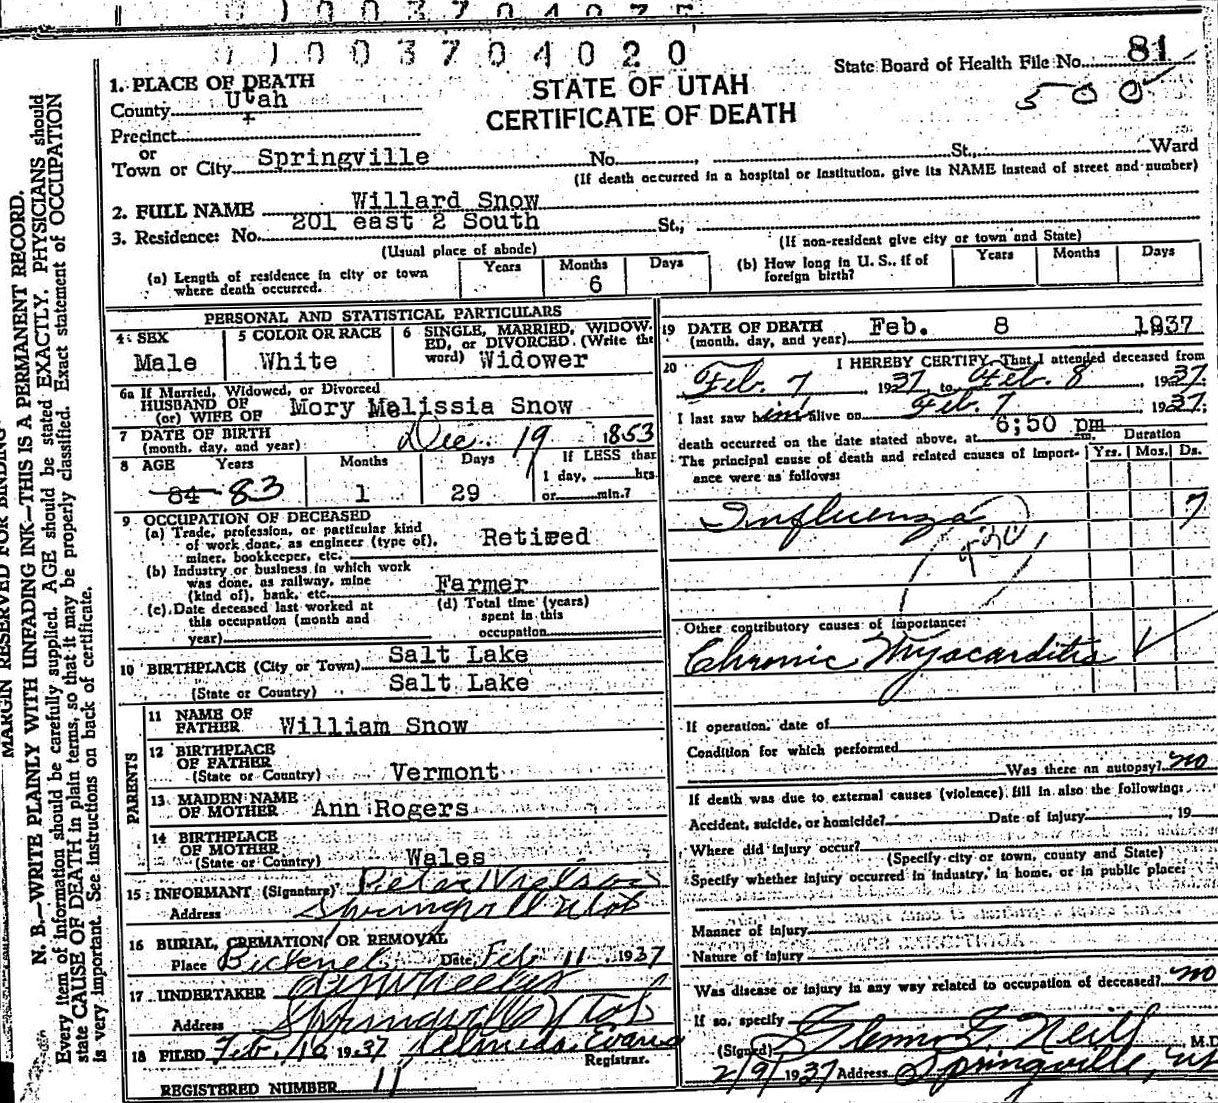 1003704020
State Board of Health File No. 81
500
STATE OF UTAH
CERTIFICATE OF DEATH
1. PLACE OF DEATH
County Utah
Precinct
or
Town or City Springville No. , St., Ward
(If death occurred in a hospital or institution, give its NAME instead of street and number)
2. FULL NAME Willard Snow
3. Residence: No. 201 east 2 South St.,
(Usual place of abode) (If non-resident give city or town and State)
(a) Length of residence in city or town where death occurred. Years Months 6 Days
(b) How long in U. S., if of foreign birth? Years Months Days
PERSONAL AND STATISTICAL PARTICULARS
4. SEX Male
5 COLOR OR RACE White
6 SINGLE, MARRIED, WIDOWED, or DIVORCED. (Write the word) Widower
6a If Married, Widowed, or Divorced
HUSBAND OF
(or) WIFE OF Mory Melissia Snow
7 DATE OF BIRTH
(month, day, and year) Dec. 19 1853
8 AGE Years Months Days If LESS than
84 83 1 29 1 day, hrs.
or min.?
9 OCCUPATION OF DECEASED
(a) Trade, profession, or particular kind
of work done, as engineer (type of), Retired
miner, bookkeeper, etc.
(b) Industry or business in which work
was done, as railway, mine
(kind of), bank, etc. Farmer
(c) Date deceased last worked at
this occupation (month and
year)
(d) Total time (years)
spent in this
occupation
10 BIRTHPLACE (City or Town) Salt Lake
(State or Country) Salt Lake
PARENTS
11 NAME OF
FATHER William Snow
12 BIRTHPLACE
OF FATHER
(State or Country) Vermont
13 MAIDEN NAME
OF MOTHER Ann Rogers
14 BIRTHPLACE
OF MOTHER
(State or Country) Wales
15 INFORMANT (Signature) Peter Nielson
Address Springvill Utah
16 BURIAL, CREMATION, OR REMOVAL
Place Bicknel Date Feb 11 1937
17 UNDERTAKER Wheeler
Address Springville Utah
18 FILED Feb. 10 1937 Evans
Registrar.
REGISTERED NUMBER 11
19 DATE OF DEATH Feb. 8 1937
(month, day, and year)
20 I HEREBY CERTIFY, That I attended deceased from
Feb. 7, 1937 to Feb. 8, 1937.
I last saw him alive on Feb. 7 1937;
death occurred on the date stated above, at 6;50 pm m.
The principal cause of death and related causes of importance were as follows:
Duration
Yrs. Mos. Ds.
Influenza 7
Other contributory causes of importance:
Chronic Myocarditis
If operation, date of
Condition for which performed
Was there an autopsy? no
If death was due to external causes (violence) fill in also the following:
Accident, suicide, or homicide? Date of injury , 19
Where did injury occur?
(Specify city or town, county and State)
Specify whether injury occurred in industry, in home, or in public place:
Manner of injury
Nature of injury
Was disease or injury in any way related to occupation of deceased? no
If so, specify
(Signed) Glenn G. Neill M.D.
2/9/1937 Address Springville, Ut
MARGIN RESERVED FOR BINDING
N. B.—WRITE PLAINLY WITH UNFADING INK—THIS IS A PERMANENT RECORD.
Every item of information should be carefully supplied. AGE should be stated EXACTLY. PHYSICIANS should
state CAUSE OF DEATH in plain terms, so that it may be properly classified. Exact statement of OCCUPATION
is very important. See instructions on back of certificate.